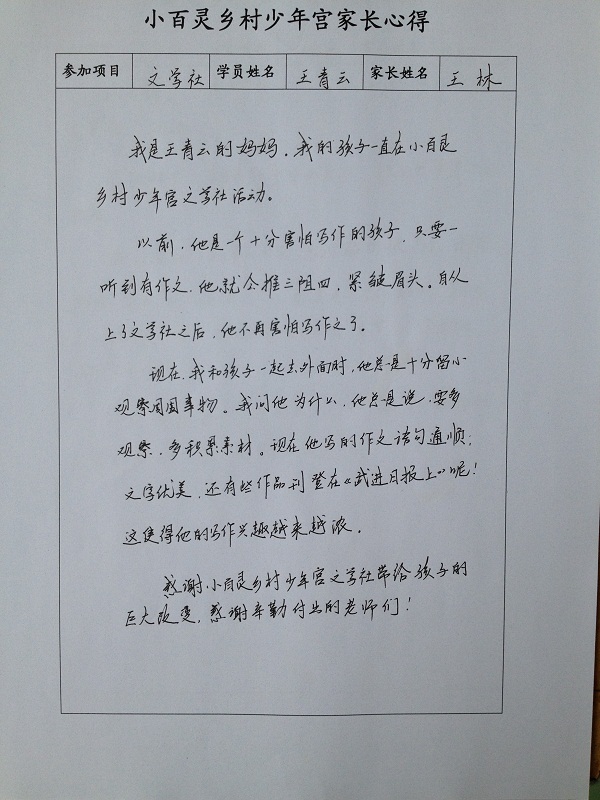 小百灵乡村少年宫家长心得
参加项目 文学社 学员姓名 王青云 家长姓名 王林
我是王青云的妈妈。我的孩子一直在小百灵
乡村少年宫文学社活动。
以前，他是一个十分害怕写作的孩子，只要一
听到有作文，他就会推三阻四，紧皱眉头。自从
上了文学社之后，他不再害怕写作文了。
现在，我和孩子一起去外面时，他总是十分留心
观察周围事物。我问他为什么，他总是说，要多
观察，多积累素材。现在他写的作文语句通顺，
文字优美，还有些作品刊登在《武进日报上》呢！
这使得他的写作兴趣越来越浓。
感谢小百灵乡村少年宫文学社带给孩子的
巨大改变，感谢辛勤付出的老师们！